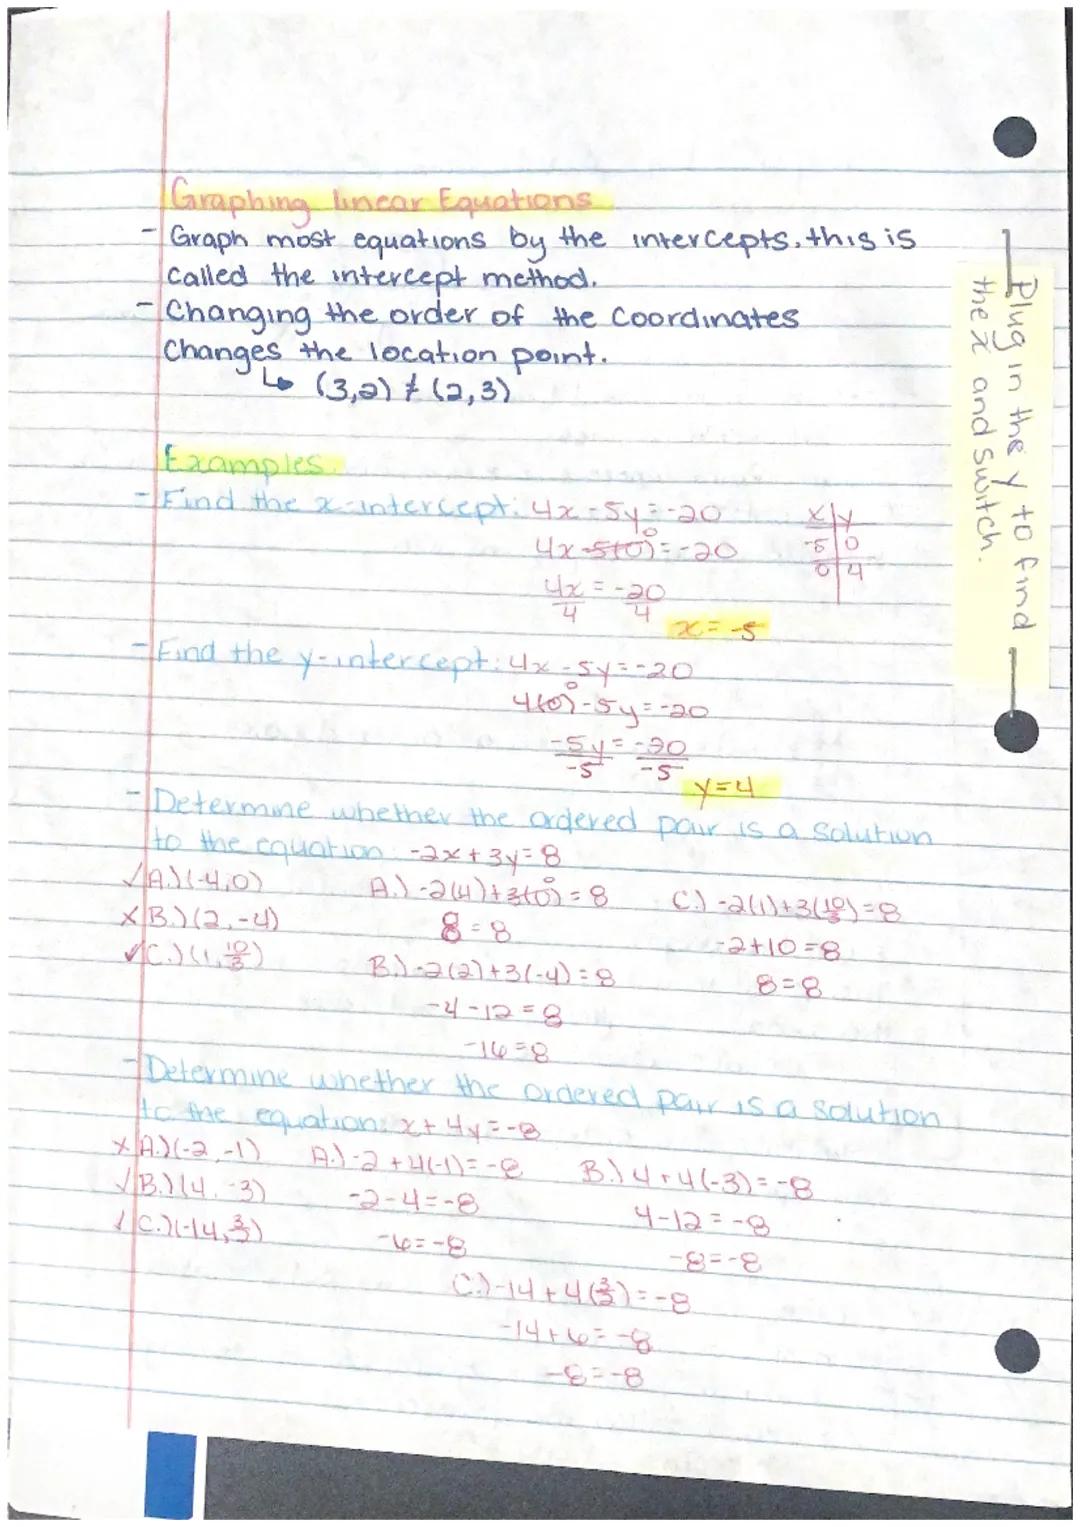 Graphing linear Equations
- Graph most equations by the intercepts. this is
called the intercept method.
- Changing the order of the coordinates
Changes the location point.
↳ (3,2) ≠ (2,3)
Plug in the y to find
the x and switch.
Examples.
- Find the x-intercept: 4x-5y=-20
4x-5(0)=-20
0
4x = -20
4 4
x = -5
x|y
-5|0
0|4
- Find the y-intercept: 4x-5y=-20
4(0)-5y=-20
0
-5y = -20
-5 -5
y=4
- Determine whether the ordered pair is a solution
to the equation: -2x+3y=8
✓A.)(-4,0)
XB.)(2,-4)
✓C.)(1,10/3)
A.) -2(4)+3(0)=8
0
8=8
B.) -2(2)+3(-4)=8
-4-12=8
-16=8
C.) -2(1)+3(10/3)=8
-2+10=8
8=8
- Determine whether the ordered pair is a solution
to the equation: x+4y=-8
XA.)(-2,-1)
✓B.)(4,-3)
✓C.)(-14,3/2)
A.) -2+4(-1)=-8
-2-4=-8
-6=-8
B.) 4+4(-3)=-8
4-12=-8
-8=-8
C.) -14+4(3/2)=-8
-14+6=-8
-8=-8